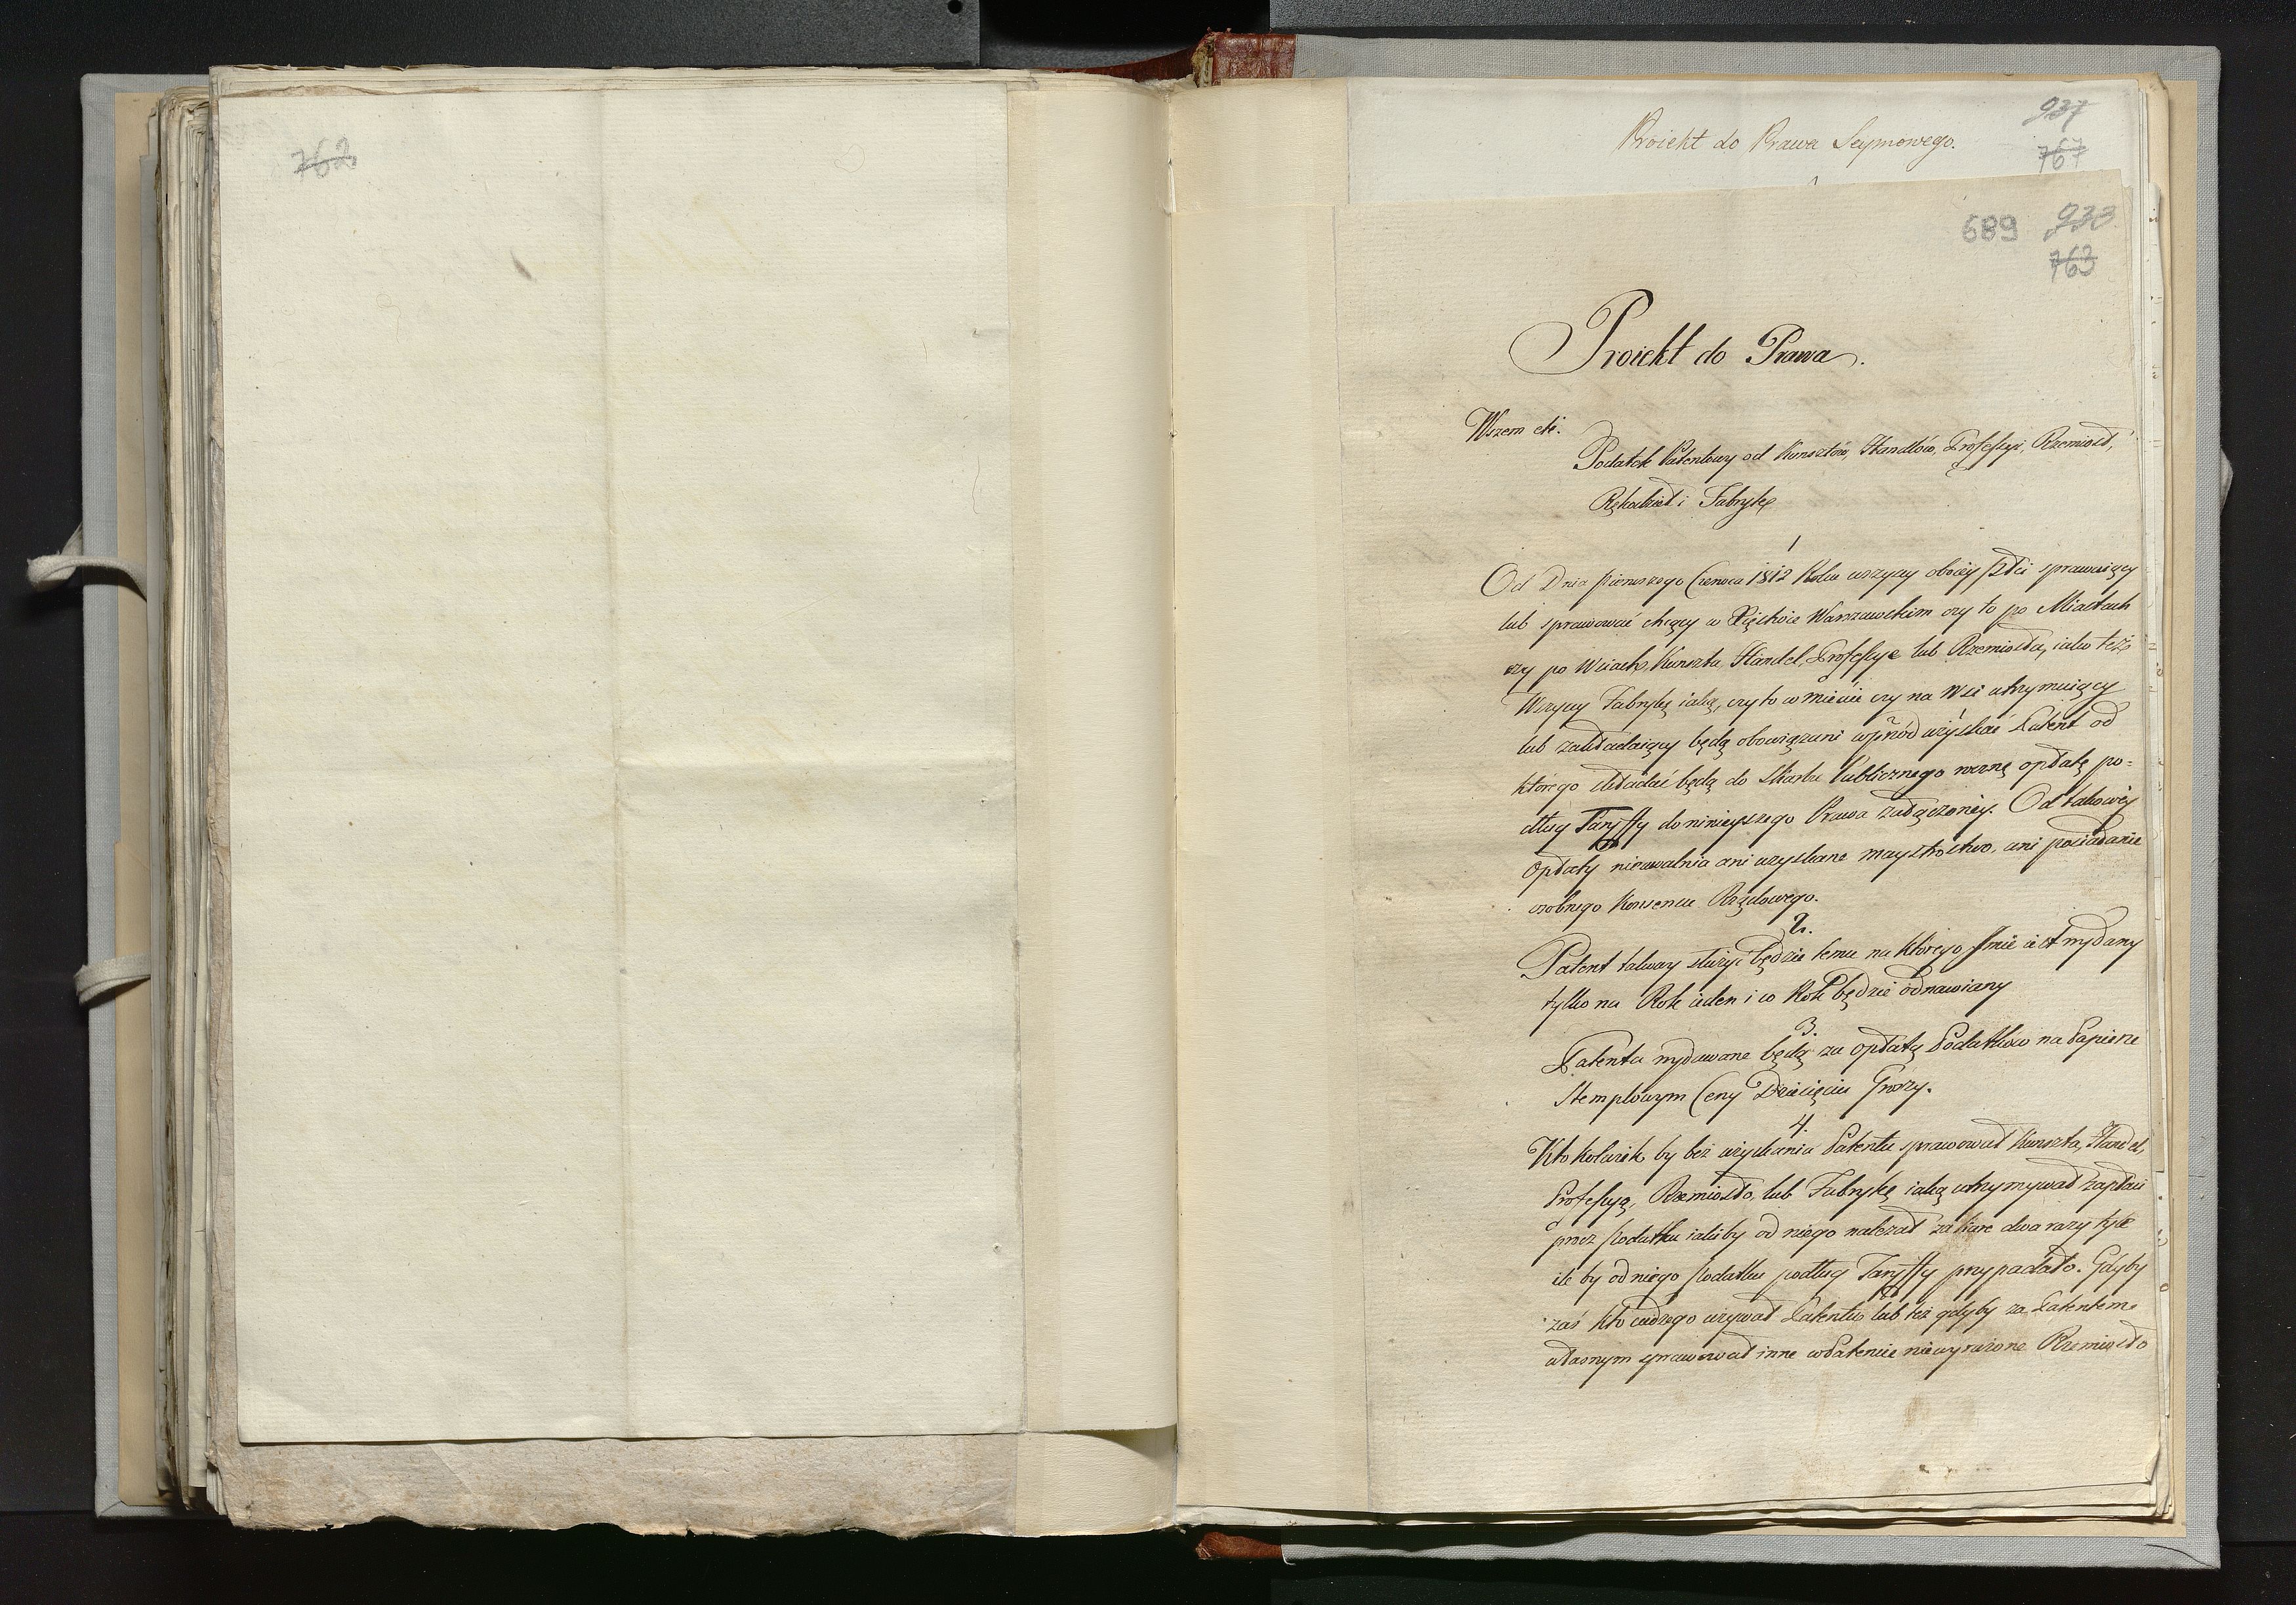 762
Proiekt do Prawa Seymowego.
937
767
689
933
763
Proiekt do Prawa.
Wszem etc.
Podatek Patentowy od Kunsztów, Handlów, Professyi, Rzemiosł,
Rękodzieł i Fabryk
1
Od Dnia pierwszego Czerwca 1812 Roku wszyscy oboiéy płci sprawuiący
lub sprawować chcący w Xięstwie Warszawskim czy to po Miastach
czy po Wsiach, Kunszta, Handel, Professye lub Rzemiosła, iako też
Wszyscy Fabrykę iaką, czy to w mieście czy na Wsi utrzymuiący
lub zakładaiący będą obowiązani wprzód uzyskać Patent od
którego składać będą do Skarbu Publicznego roczną opłatę po=
dług Taryffy do ninieyszego Prawa załączonéy. Od takowéy
opłaty nieuwalnia ani uzyskane maystrostwo, ani posiadanie
osobnego Konsensu Rządowego.
2.
Patent takowy służyć będzie temu na którego Jmie iest wydany
tylko na Rok ieden i co Rok będzie odnawiany
3.
Patenta wydawane będą za opłatą Podatków na Papierze
Stemplowym Ceny Dziesięciu Groszy.
4.
Ktokolwiek by bez uzyskania Patentu sprawował Kunszta, Handel,
Professyą, Rzemiosło, lub Fabrykę iaką utrzymywał zapłaci
prócz podatku iakiby od niego należał za karę dwa razy tyle
ile by od niego podatku podług Taryffy przypadało. Gdyby
zaś kto cudzego używał Patentu lub też gdyby za Patentem
własnym sprawował inne w Patencie niewyrażone Rzemiosło